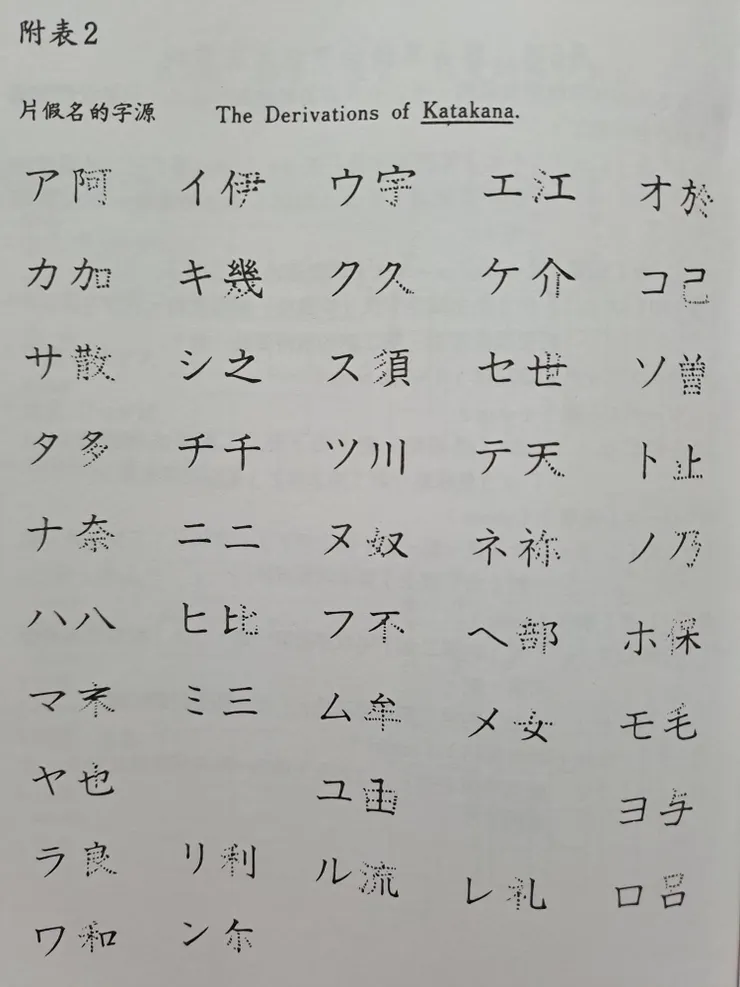 附表2
片假名的字源 The Derivations of Katakana.
ア阿 イ伊 ウ宇 エ江 オ於
カ加 キ幾 ク久 ケ介 コ己
サ散 シ之 ス須 セ世 ソ曽
タ多 チ千 ツ川 テ天 ト止
ナ奈 ニ二 ヌ奴 ネ祢 ノ乃
ハ八 ヒ比 フ不 ヘ部 ホ保
マ末 ミ三 ム牟 メ女 モ毛
ヤ也 ユ由 ヨ与
ラ良 リ利 ル流 レ礼 ロ呂
ワ和 ン尓